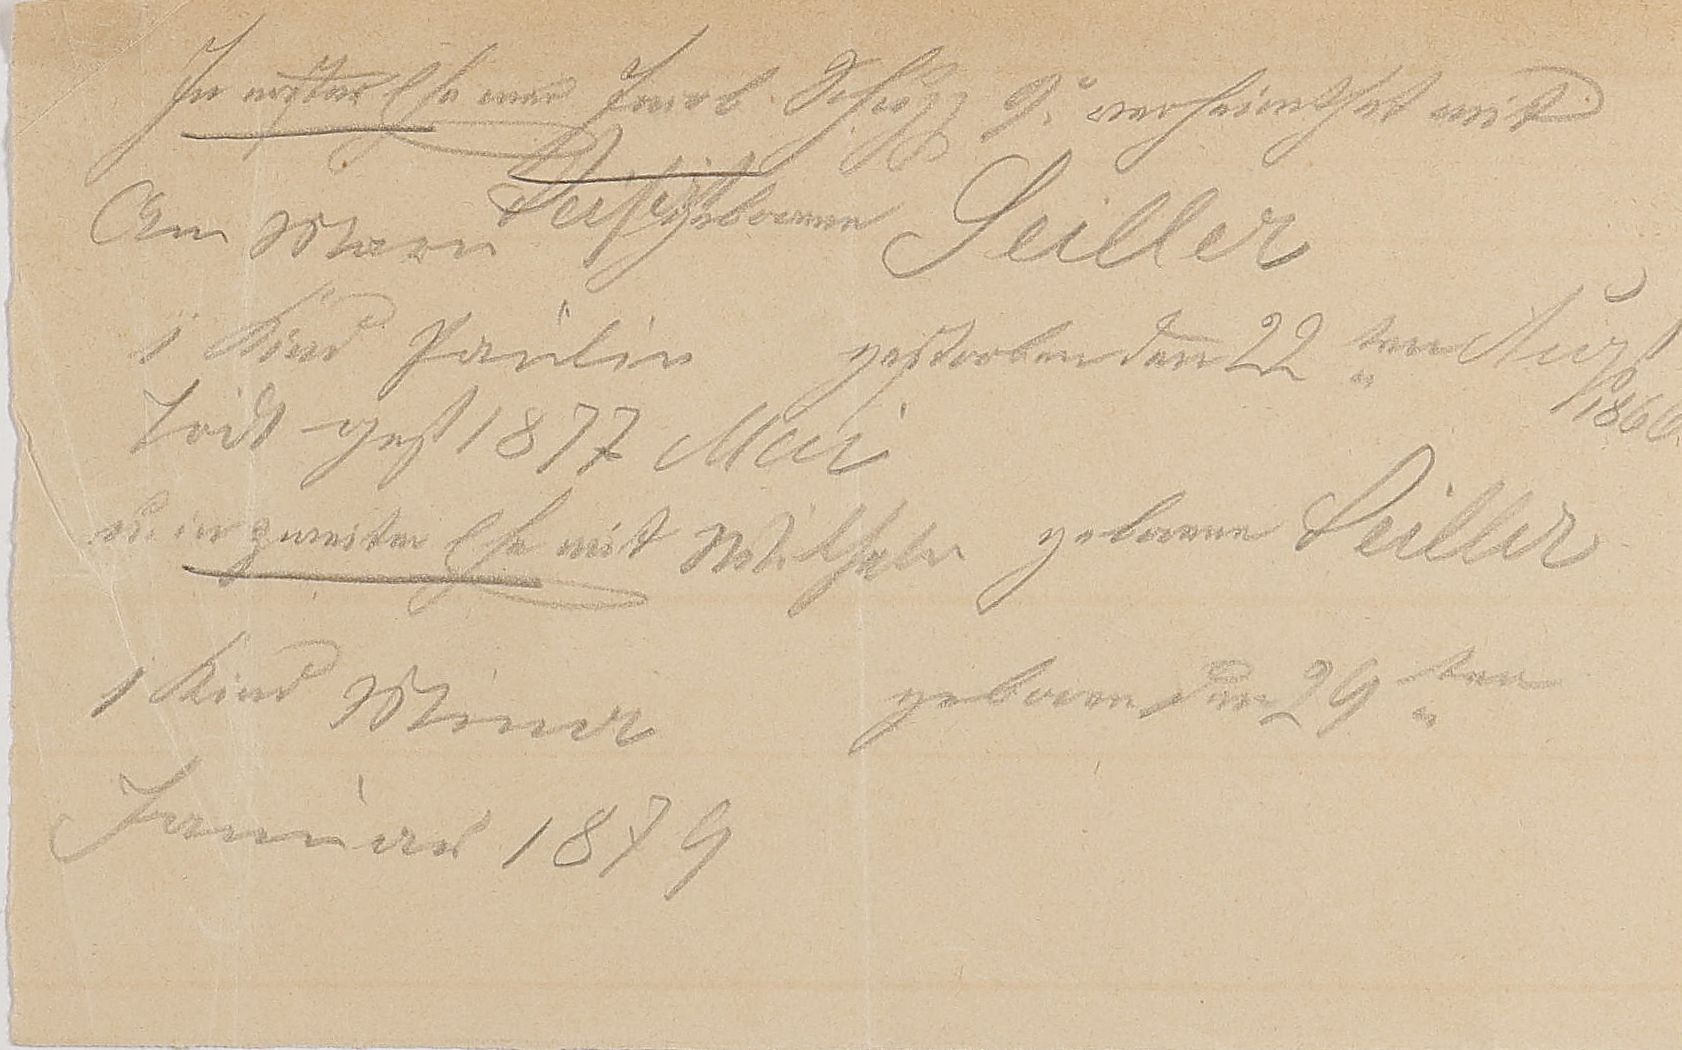 In erster Ehe war Jacob Schopp 9. verheirathet mit
An Maria geborene Seiller
1 Kind Paulin gestorben den 22ten Augst 1866
Todt gest 1877 Mai
u. in zweiter Ehe mit Wilhelm geborene Seiller
1 Kind geboren den 29ten
Januar 1879